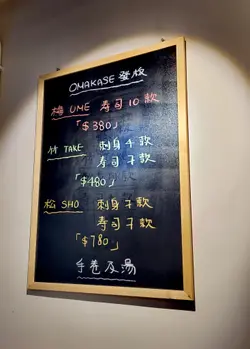 OMAKASE 發板
梅 UME 寿司 10 款
「$380」
竹 TAKE 刺身 4 款
寿司 7 款
「$480」
松 SHO 刺身 7 款
寿司 7 款
「$780」
手卷及湯